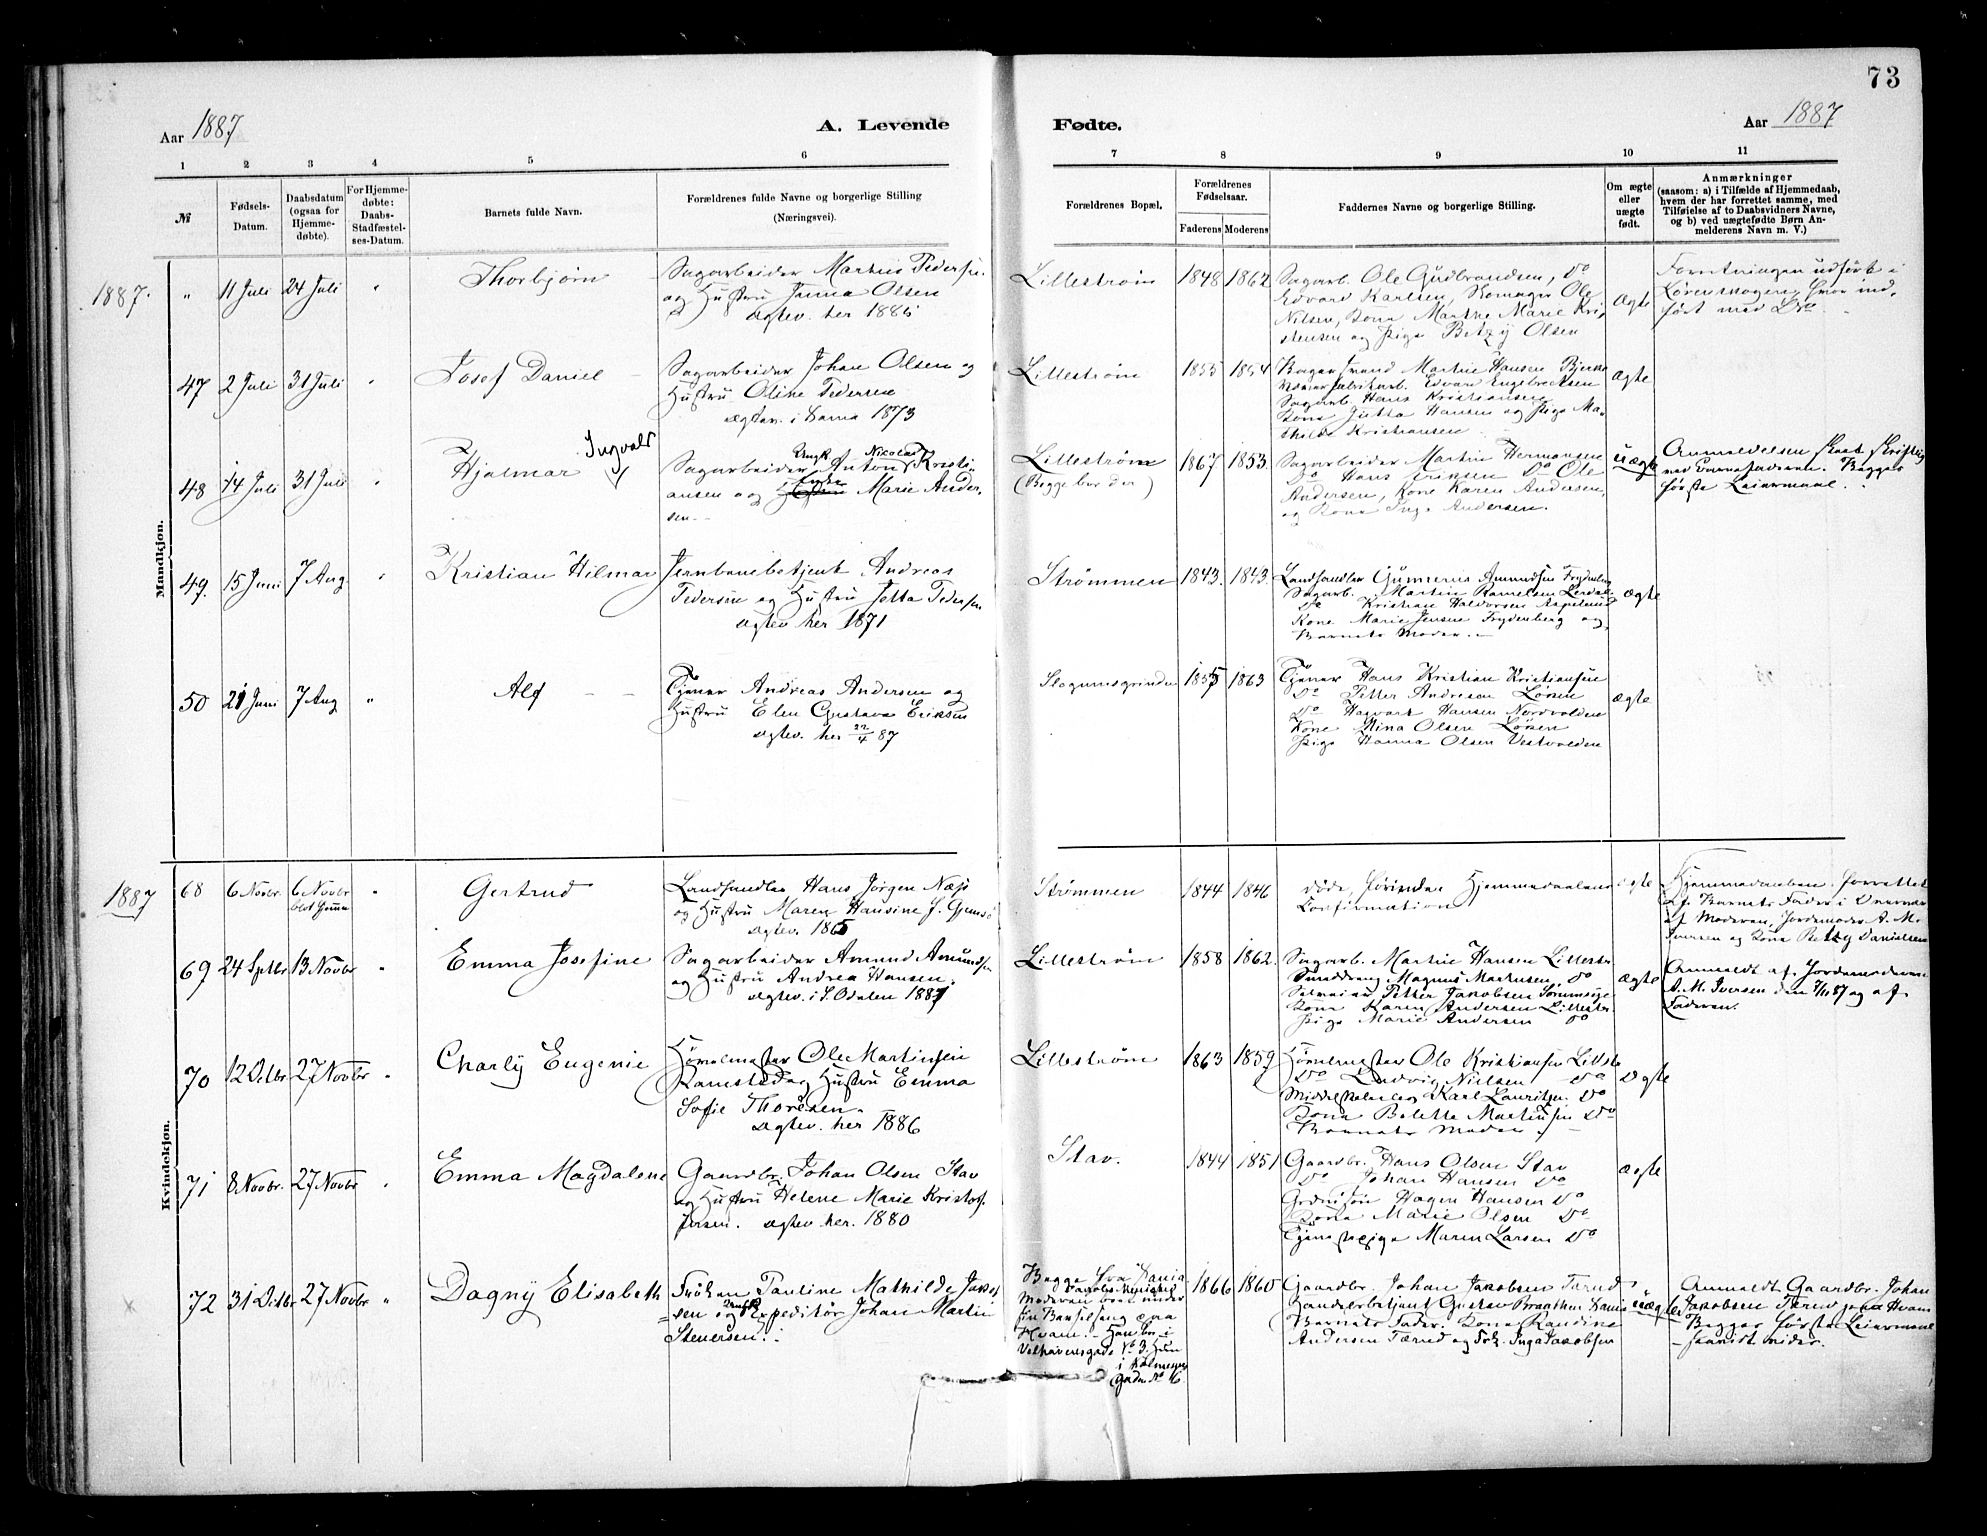 73
Aar 1887
A. Levende
Fødte.
Aar 1887
1 2 3 4 5 6 7 8 9 10 11
№
Fødsels-
Datum.
Daabsdatum
(ogsaa for
Hjemme-
døbte).
For Hjemme-
døbte:
Daabs-
Stadfæstel-
ses-Datum.
Barnets fulde Navn.
Forældrenes fulde Navne og borgerlige Stilling
(Næringsvei).
Forældrenes Bopæl.
Forældrenes
Fødselsaar.
Faderens Moderens
Faddernes Navne og borgerlige Stilling.
Om ægte
eller
uægte
født.
Anmærkninger
(saasom: a) i Tilfælde af Hjemmedaab,
hvem der har forrettet samme, med
Tilføielse af to Daabsvidners Navne,
og b) ved uægtefødte Børn An-
melderens Navn m. V.)
Mandkjøn.
1887.
" 11 Juli 24 Juli "
Thorbjørn
Sagarbeider Martius Pedersen
og Hustru Janna Olsen
ægtev. her 1886
Lillestrøm
1848 1862
Sagarb. Ole Gudbrandsen, Do
Edvard Karlsen, Skomager Ole
Nilsen, Kone Marthe Marie Kri-
stensen og Pige Betzy Olsen
ægte
Forretningen udført i
Lørenskogen, hvor ind-
ført med No
47 2 Juli 31 Juli "
Josef Daniel
Sagarbeider Johan Olsen og
Hustru Oline Pedersen
ægtev. i Sama 1873
Lillestrøm
1855 1854
Martin Hansen Bjerke
Edvard Engebretsen
Sagarb. Hans Kristiansen
Kone Jutta Hansen og Pige Ma-
thilde Kristiansen
ægte
48 14 Juli 31 Juli "
Hjalmar Ingvald
Ungk Nicolai
Sagarbeider Anton Kristi-
ansen og Enke Marie Ander-
sen
Lillestrøm
(Begge bor der)
1867 1853.
Sagarbeider Martin Hermansen
Do Hans Eriksen Do Ole
Andersen, Kone Karen Andersen,
og Kone Inga Andersen.
uægte
Anmeldelsen skeet skriftlig
ved Barnefaderen. Begges
første Leiermaal.
49. 15 Juni 7 Aug. "
Kristian Hilmar
Jernbanebetjent Andreas
Pedersen og Hustru Jetta Pedersen
ægtev her 1871
Strømmen
1843. 1843.
Landhandler Gunnerius Amundsen Frydenberg
Sagarb. Martin
Do Kristian Halvorsen
Kone Marie Jensen Frydenberg og
Barnets Moder.
ægte
50 21 Juni 7 Aug "
Alf
Tjener Andreas Andersen og
Hustru Elen Gustava Eriksen
ægtev. her 22/4 87
1855 1863
Tjener Hans Kristian Kristiansen
Do Petter Andresen Løren
Do Hagvart Hansen Nordvolden
Kone Mina Olsen Løren
Pige Hanna Olsen Vestvolden
ægte
Kvindekjøn.
1887
68 6 Novbr. 6 Novbr
"
Gertrud
Landhandler Hans Jørgen Næss
og Hustru Maren Hansine f.
ægtev. 1865
Strømmen
1844 1846
døde, førinden Hjemmedaabens
Confirmation
ægte
Hjemmedaaben forrettet
af Barnets Fader i Nærvær
af Moderen, Jordemoder A. M.
Iversen og Kone Betzy Danielsen
69 24 Sptbr 13 Novbr "
Emma Josefine
Sagarbeider Amund Amundsen
og Hustru Andrea Hansen.
ægtev. i S. Odalen 1887
Lillestrøm
1858 1862.
Sagarb. Martin Hansen Lillestr.
Magnus Martinsen Do
Petter Jakobsen
Kone Karen Andersen Lillestr.
Pige Marie Andersen Do
ægte
Anmeldt af Jordemoderen
A. M. Iversen den 7/11 87 og af
Faderen.
70 12 Octbr 27 Novbr "
Charly Eugenie
Høvelmester Ole Martinsen
Ramstad og Hustru Emma
Sofie Thoresen.
ægtev. her 1886
Lillestrøm
1863 1859
Høvelmester Ole Kristiansen Lillestr
Do Ludvig Nielsen Do
Karl Lauritzen Do
Kone Bolette Martinsen Do
Barnets Moder
ægte
71 8 Novbr. 27 Novbr "
Emma Magdalene
Gaardbr. Johan Olsen Stav
og Hustru Helene Marie Kristof-
fersen. ægtev. her. 1880
Stav.
1844 1851
Gaardbr. Hans Olsen Stav
Do Johan Hansen Do
Hagen Hansen Do
Kone Marie Olsen Do
Tjenestepige Maren Larsen Do
ægte
72 31 Octbr 27 Novbr "
Dagny Elisabeth
Frøken Pauline Mathilde Jakob-
sen og Ungk Expeditør Johan Martin
Stenersen.
Begge fra
Moderen bor
Hvam. Han bor i
Velhavensgade No 3. Hun
i Holmens
gade No 16.
1866 1860
Gaardbr. Johan Jakobsen Tærud
Handelsbetjent Gustav Braathen
Barnets Fader. Kone Randine
Andersen Tærud og Frk. Inga Jakobsen
uægte
Anmeldt Gaardbr. Johan
Jakobsen Tærud paa Hvam
Begges første Leiermaal
saavidt vides.